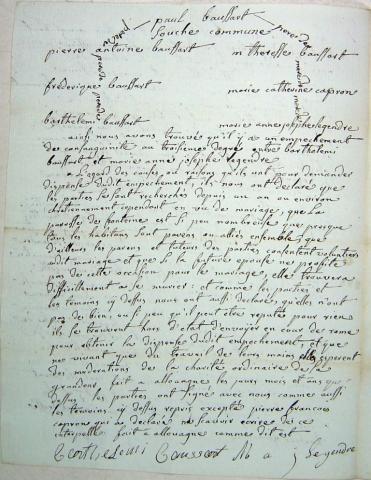 paul baussart
souche commune
pierre antoine baussart m theresse baussart
frederique baussart marie catherine capron
barthelemi baussart marie anne josephe legendre
ainsi nous avons trouvés qu'il y a un empechement
de consanguinité au troisieme degré entre barthelemi
baussart et marie anne josephe legendre
a L'egard des causes, ou raisons qu'ils ont pour demander
dispense dudit empechement, ils nous ont declaré que
les parties se sont recherchés depuis un an ou environ
chretiennement cependant en vue de mariage, que La
paroisse de fonteine est si peu nombreuse que presque
tous les habitans sont parens ou alliés ensemble, que
d'ailleurs les parens et tuteurs des parties consentent volontiers
audit mariage et que si La future epouse ne profitoit
pas de cette occasion pour le mariage, elle trouvera
difficillement a se marier: et comme les parties et
les temoins cy dessus nous ont aussi declaré, qu'elles n'ont
pas de bien, ou si peu qu'il peut etre reputé pour rien
ils se trouvent hors d'etat d'envoyer en cour de rome
pour obtenir La dispense dudit empechement, et que
ne vivant que du travail de leurs mains elles esperent
des moderations de la charité ordinaire de sa
grandeur fait a allouagne les jours mois et ans que
dessus, les parties ont signé avec nous comme aussi
les temoins cy dessus repris excepté pierre francois
capron qui a declaré ne scavoir ecrire de ce
interpellé fait a allouagne comme dit est
Barthelemi Baussart M a j Legendre